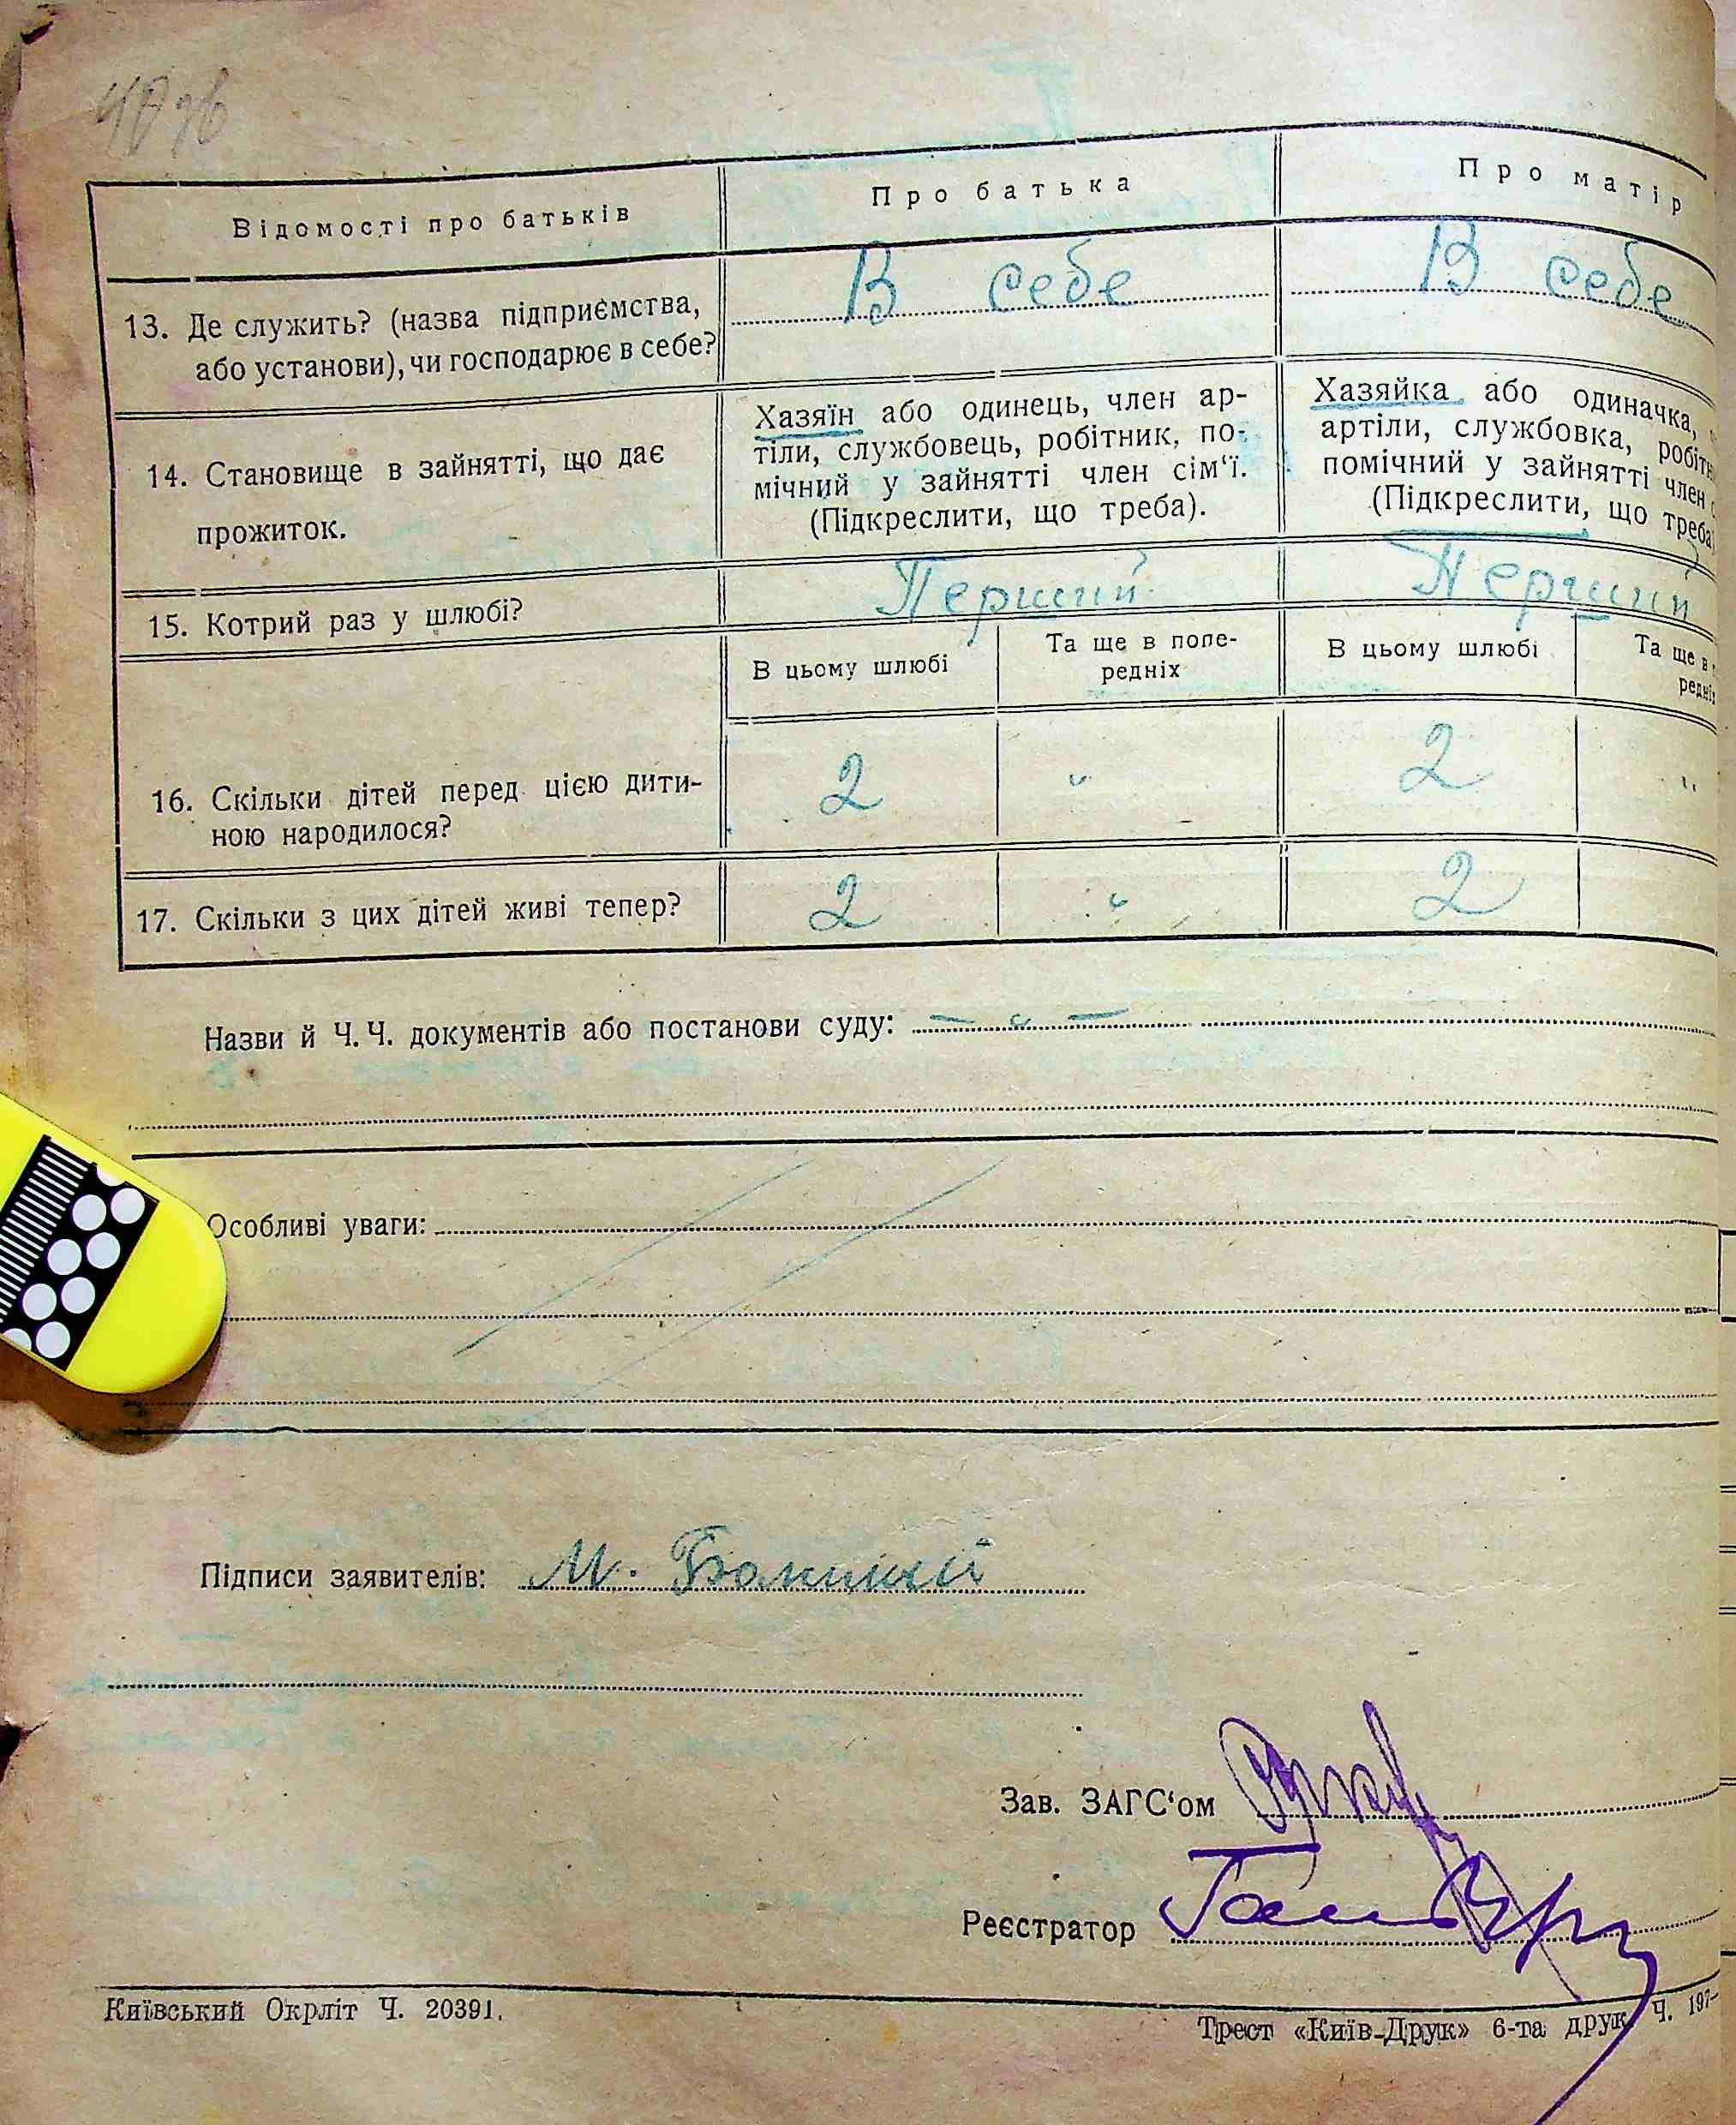 Відомості про батьків
Про батька
Про матір
13. Де служить? (назва підприємства,
або установи), чи господарює в себе?
В себе
В себе
14. Становище в зайнятті, що дає
прожиток.
Хазяїн або одинець, член ар-
тіли, службовець, робітник, по-
мічний у зайнятті член сім‘ї.
(Підкреслити, що треба).
Хазяйка або одиначка,
артіли, службовка, робітн
помічний у зайнятті член с
(Підкреслити, що треба)
15. Котрий раз у шлюбі?
Перший
Перший
В цьому шлюбі
Та ще в попе-
редніх
В цьому шлюбі
Та ще в
редніх
16. Скільки дітей перед цією дити-
ною народилося?
2 "
2 "
17. Скільки з цих дітей живі тепер?
2 "
2
Назви й Ч. Ч. документів або постанови суду: — " —
Особливі уваги:
Підписи заявителів: М.
Зав. ЗАГС‘ом
Реєстратор
Київський Окрліт Ч. 20391.
Трест «Київ-Друк» 6-та друк. Ч. 197-